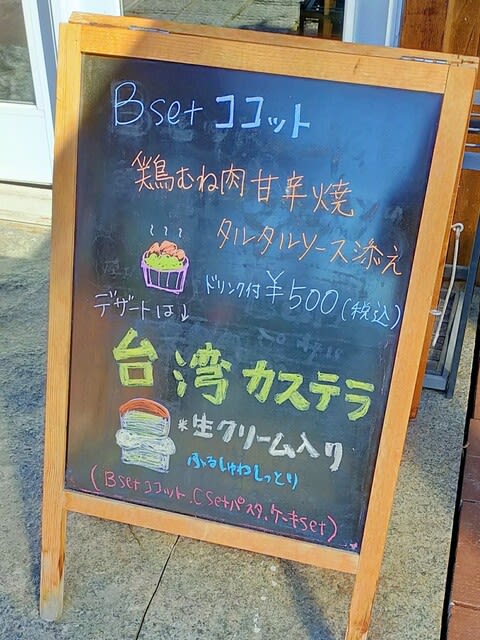 Bset ココット
鶏むね肉甘辛焼
タルタルソース添え
ドリンク付 ¥500(税込)
デザートは↓
台湾カステラ
*生クリーム入り
ふるしゅわしっとり
(Bsetココット、Csetパスタ、ケーキset)